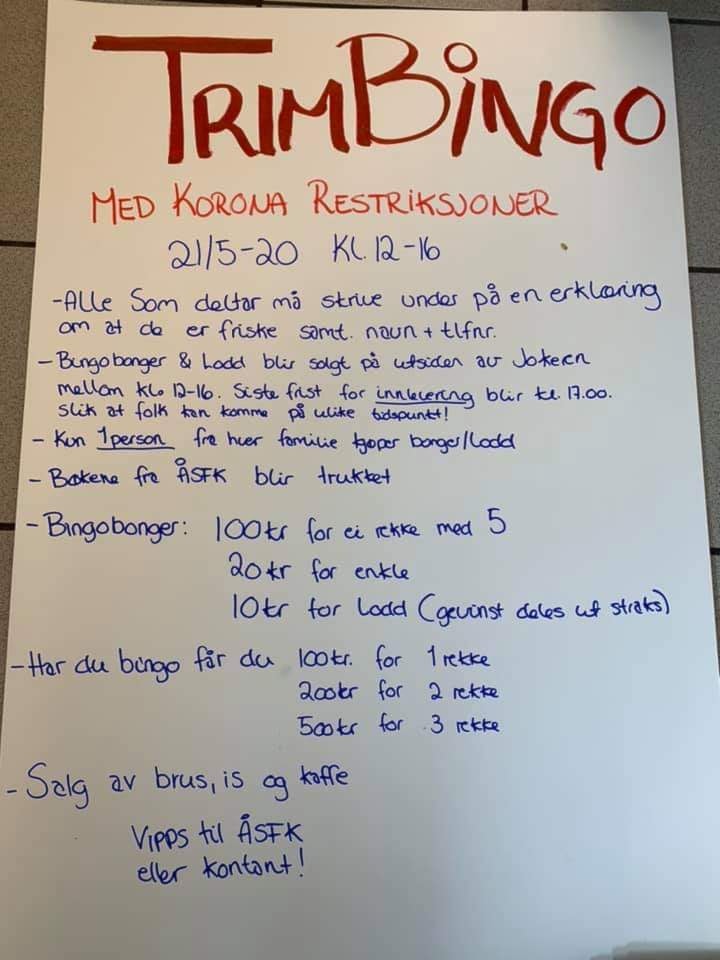 TRIMBINGO
MED KORONA RESTRIKSJONER
21/5-20 KL. 12-16
-Alle Som deltar må skrive under på en erklæring
om at de er friske samt. navn + tlfnr.
- Bingobonger & Lodd blir solgt på utsiden av Jokern
mellom kl. 12-16. Siste frist for innlevering blir kl. 17.00.
slik at folk kan komme på ulike tidspunkt!
- Kun 1 person fra hver familie kjøper bonger/lodd
- Bøkene fra ÅSFK blir trukket
- Bingobonger: 100kr for ei rekke med 5
20kr for enkle
10kr for Lodd (gevinst deles ut straks)
- Har du bingo får du 100kr. for 1 rekke
200kr for 2 rekke
500kr for 3 rekke
- Salg av brus, is og kaffe
VIPPS til ÅSFK
eller kontant!